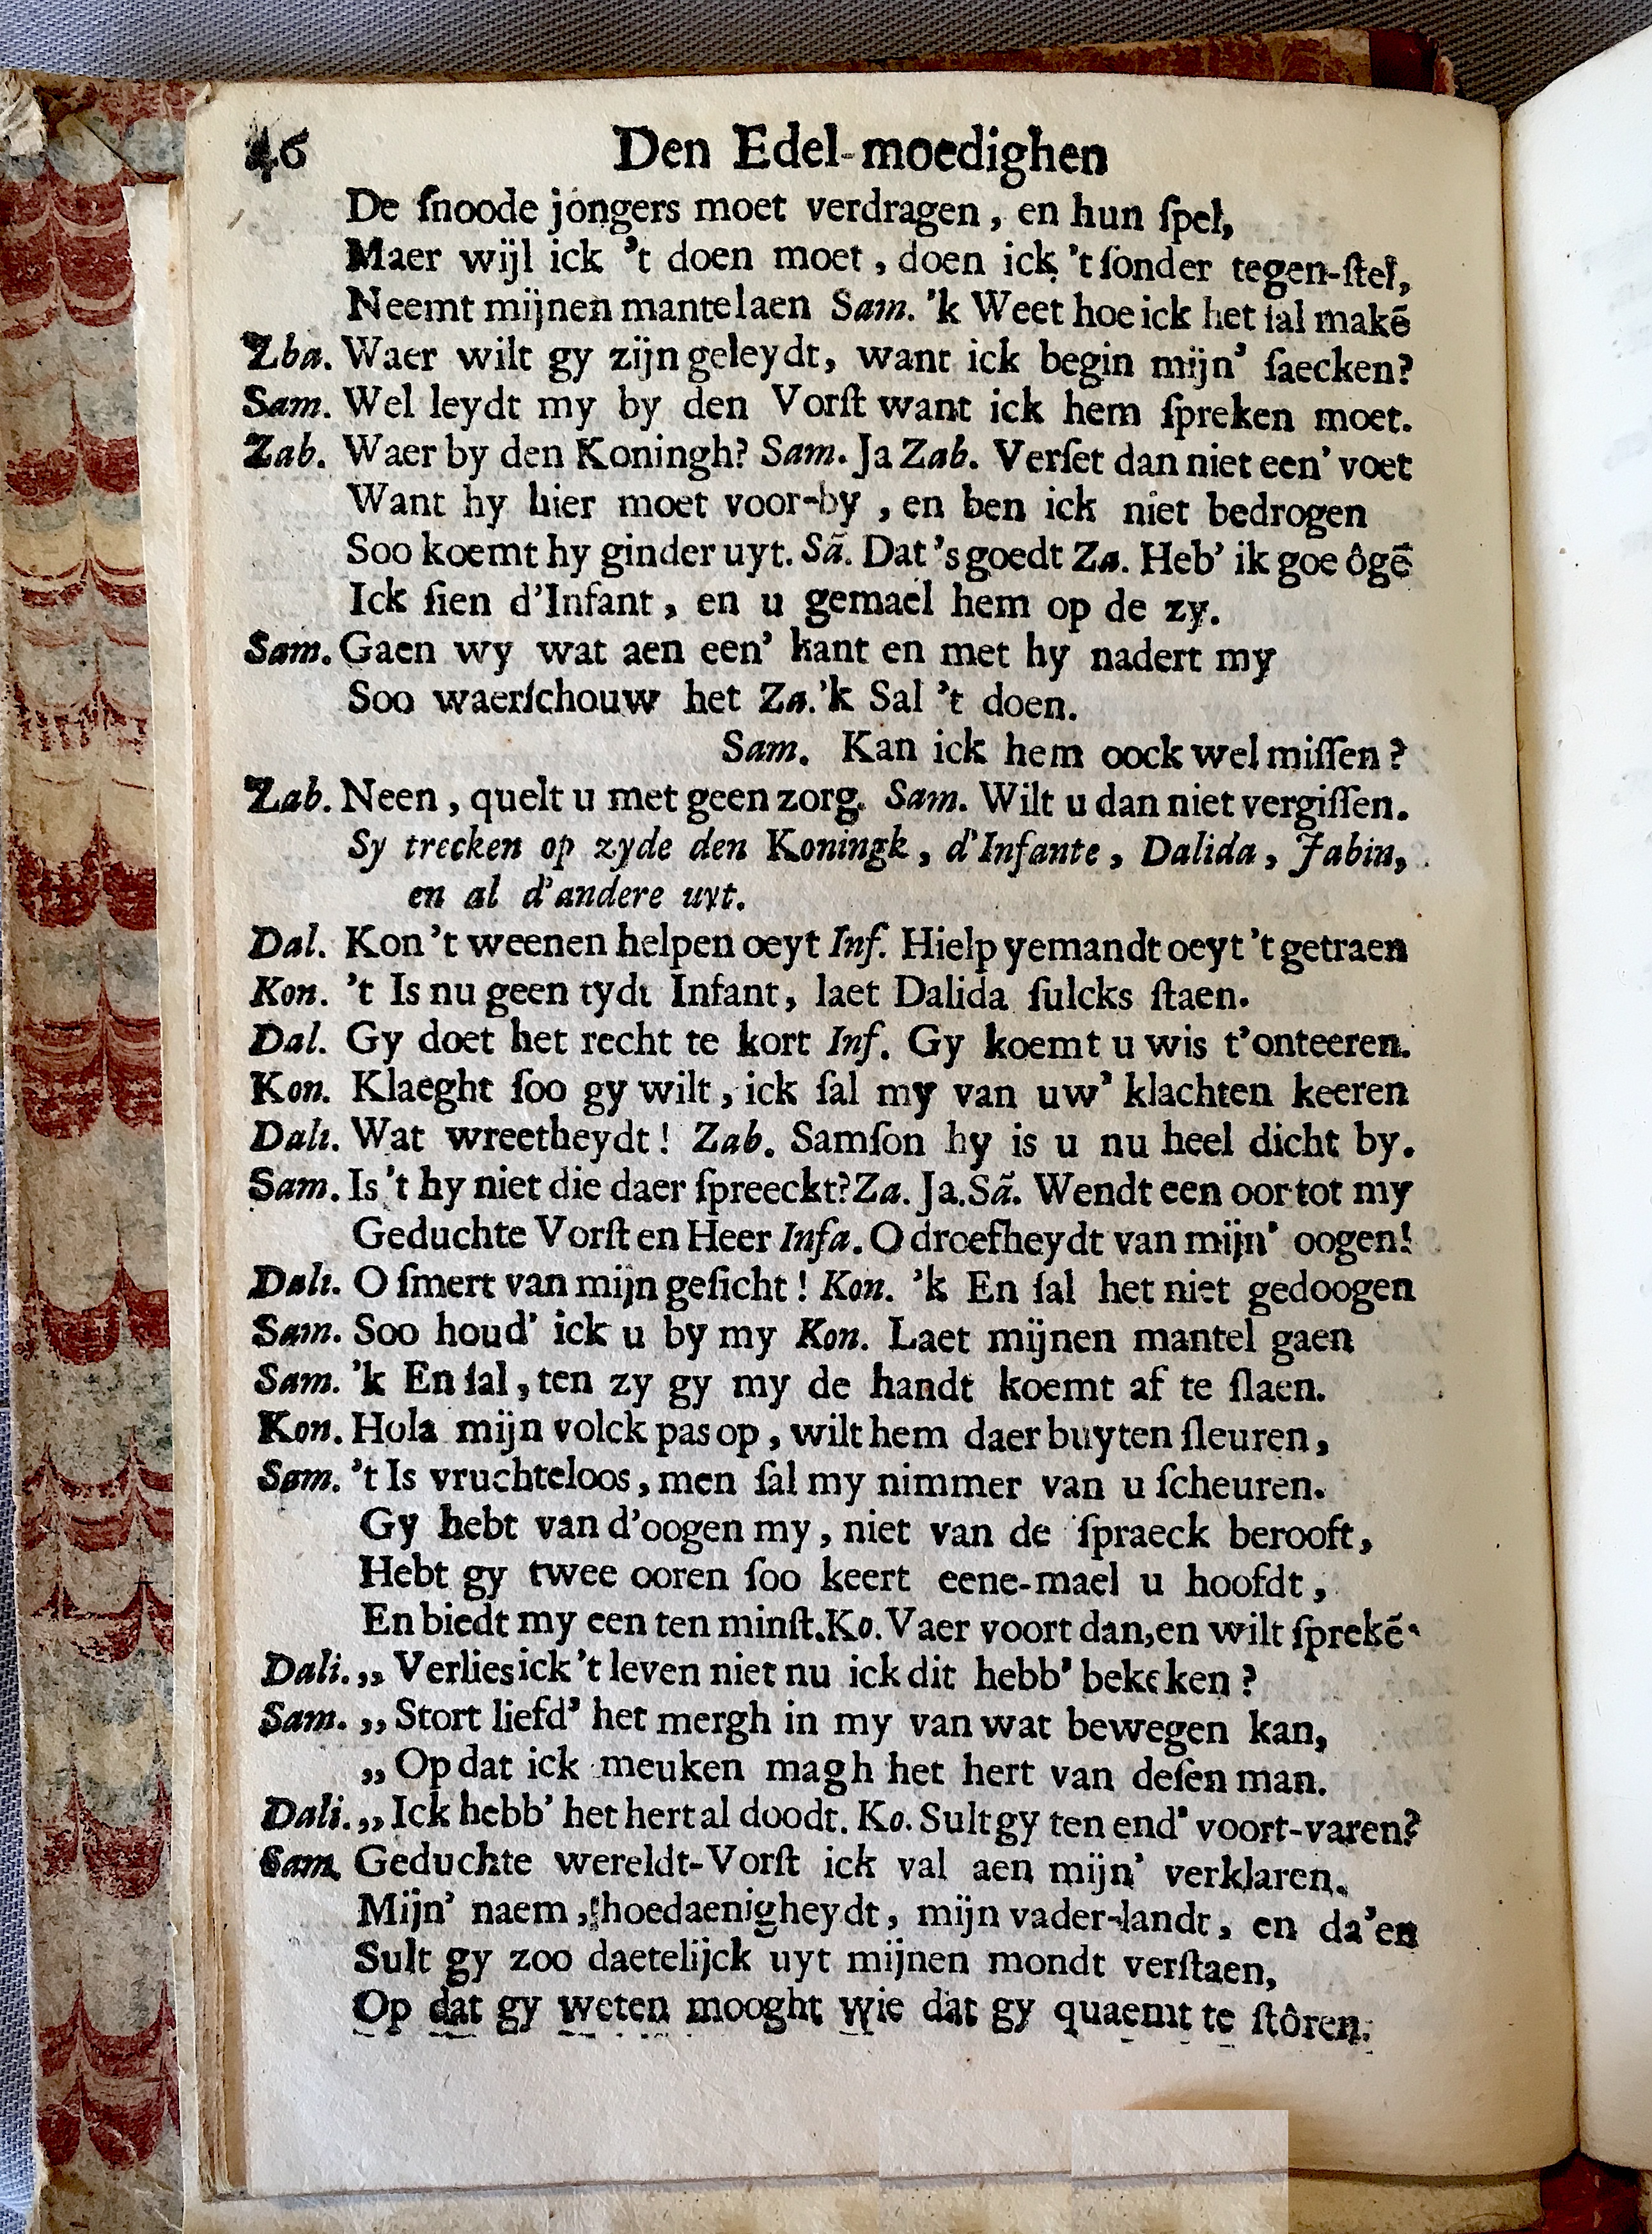 46 Den Edel-moedighen
De ſnoode jongers moet verdragen, en hun ſpel,
Maer wijl ick 't doen moet, doen ick 't ſonder tegen-ſtel,
Neemt mijnen mantel aen Sam. 'k Weet hoe ick het ſal makē
Zba. Waer wilt gy zijn geleydt, want ick begin mijn' ſaecken?
Sam. Wel leydt my by den Vorſt want ick hem ſpreken moet.
Zab. Waer by den Koningh? Sam. Ja Zab. Verſet dan niet een' voet
Want hy hier moet voor-by, en ben ick niet bedrogen
Soo koemt hy ginder uyt. Sā. Dat 's goedt Za. Heb' ik goe ôgē
Ick ſien d'Infant, en u gemael hem op de zy.
Sam. Gaen wy wat aen een' kant en met hy nadert my
Soo waerſchouw het Za. 'k Sal 't doen.
Sam. Kan ick hem oock wel miſſen?
Zab. Neen, quelt u met geen zorg. Sam. Wilt u dan niet vergiſſen.
Sy trecken op zyde den Koningk, d'Infante, Dalida, Jabin,
en al d'andere uyt.
Dal. Kon 't weenen helpen oeyt Inf. Hielp yemandt oeyt 't getraen
Kon. 't Is nu geen tydt Infant, laet Dalida ſulcks ſtaen.
Dal. Gy doet het recht te kort Inf. Gy koemt u wis t'onteeren.
Kon. Klaeght ſoo gy wilt, ick ſal my van uw' klachten keeren
Dali. Wat wreetheydt! Zab. Samſon hy is u nu heel dicht by.
Sam. Is 't hy niet die daer ſpreeckt? Za. Ja. Sā. Wendt een oor tot my
Geduchte Vorſt en Heer Infa. O droefheydt van mijn' oogen!
Dali. O ſmert van mijn geſicht! Kon. 'k En ſal het niet gedoogen
Sam. Soo houd' ick u by my Kon. Laet mijnen mantel gaen
Sam. 'k En ſal, ten zy gy my de handt koemt af te ſlaen.
Kon. Hola mijn volck pas op, wilt hem daer buyten ſleuren,
Sam. 't Is vruchteloos, men ſal my nimmer van u ſcheuren.
Gy hebt van d'oogen my, niet van de ſpraeck berooft,
Hebt gy twee ooren ſoo keert eene-mael u hoofdt,
En biedt my een ten minſt. Ko. Vaer voort dan, en wilt ſprekē
Dali. „ Verlies ick 't leven niet nu ick dit hebb' bekeken?
Sam. „ Stort liefd' het mergh in my van wat bewegen kan,
„ Op dat ick meuken magh het hert van deſen man.
Dali. „ Ick hebb' het hert al doodt. Ko. Sult gy ten end' voort-varen?
Sam. Geduchte wereldt-Vorſt ick val aen mijn' verklaren.
Mijn' naem, hoedaenigheydt, mijn vader-landt, en da'en
Sult gy zoo daetelijck uyt mijnen mondt verſtaen,
Op dat gy weten mooght wie dat gy quaemt te ſtôren.